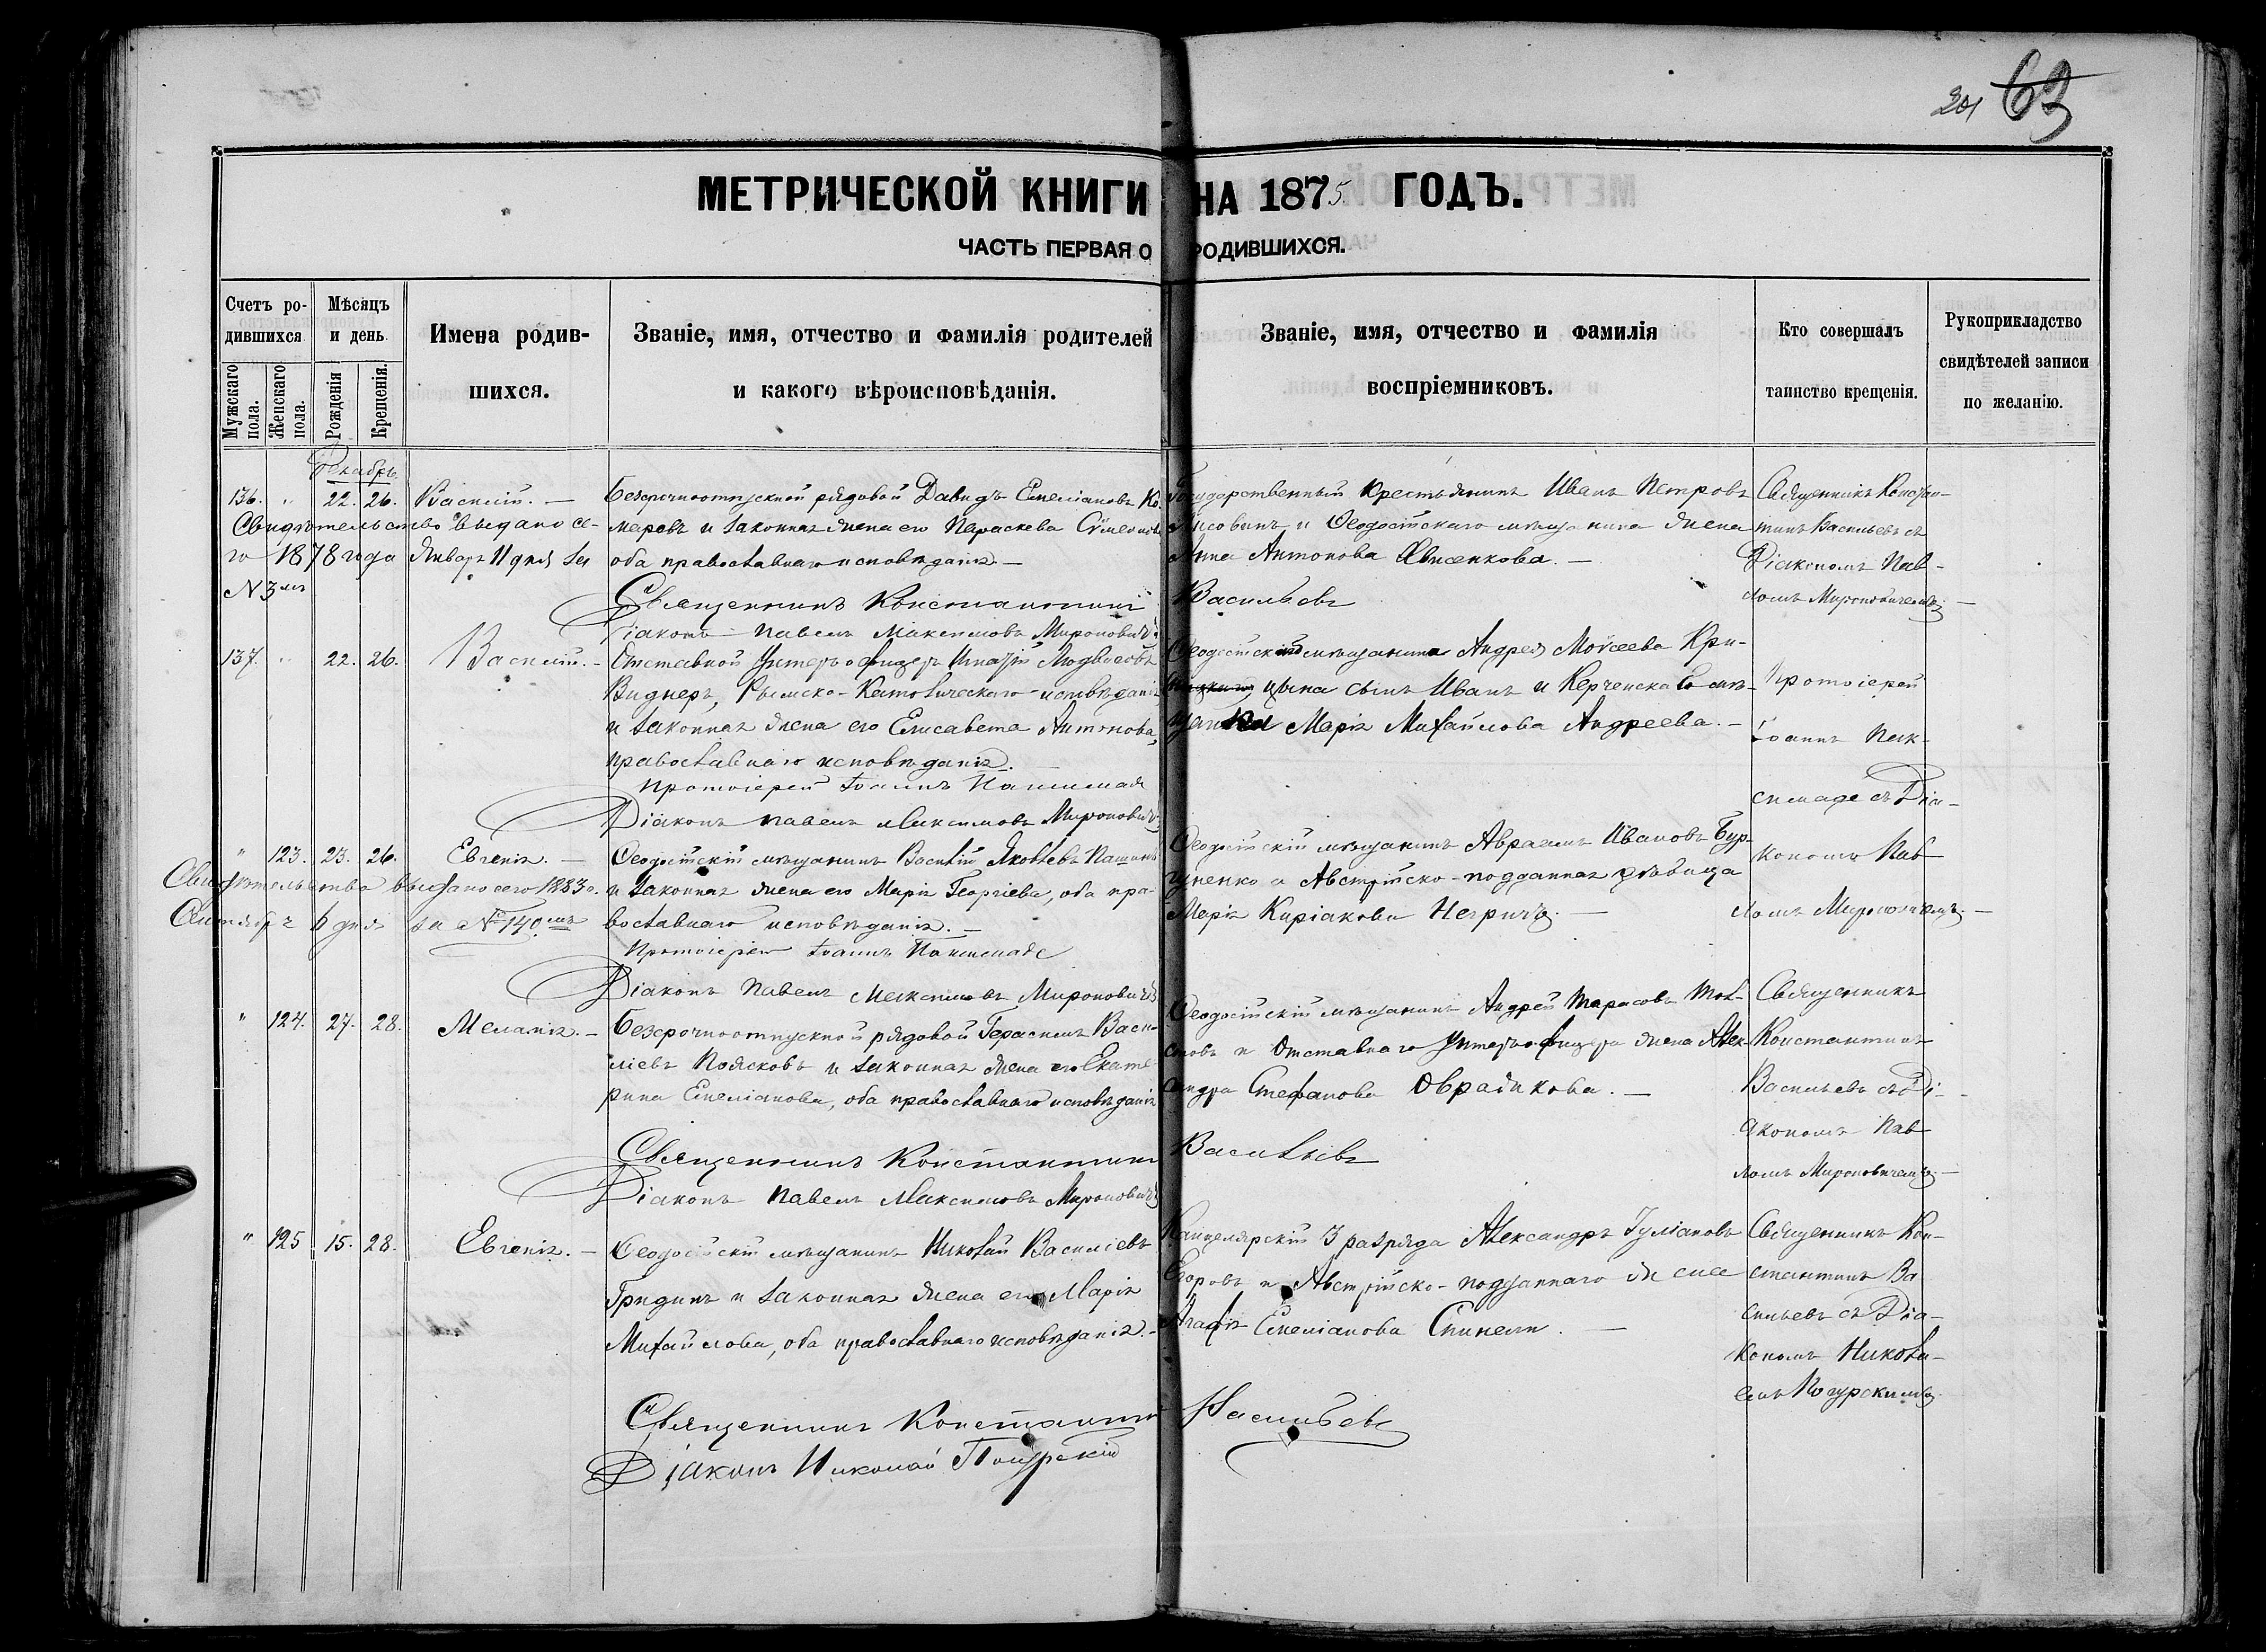 201 63
МЕТРИЧЕСКОЙ КНИГИ НА 1875. ГОДЪ.
ЧАСТЬ ПЕРВАЯ О РОДИВШИХСЯ.
Счетъ ро-
дившихся.
Мужскаго пола.
Женскаго пола.
Мѣсяцъ
и день.
Рожденія
Крещенія.
Имена родив-
шихся.
Званіе, имя, отчество и фамилія родителей
и какого вѣроисповѣданія.
Званіе, имя, отчество и фамилія
воспріемниковъ.
Кто совершалъ
таинство крещенія.
Рукоприкладство
свидѣтелей записи
по желанію.
Декабрь
136. „ 22. 26. Василій. —
Свидѣтельство выдано се-
го 1878 года Январ 11 дня за
№ 3мъ
Безсрочноотпускной рядовой Давидъ Емеліановъ Ко-
маровъ и законная жена его Параскева Сѵмеонова
оба православнаго исповѣданія. —
Священникъ Константинъ Васильевъ
Діаконъ Павелъ Максимовъ Мироновичъ
Государственный крестьянинъ Иванъ Петровъ
и Ѳеодосійскаго мѣщанина жена
Анна Антонова —
Священникъ Констан-
тинъ Васильевъ съ
Діакономъ Пав-
ломъ Мироновичемъ. —
137. „ 22. 26. Василій. —
Отставной Унтеръ офицеръ Игнатій
Виднеръ, Римско-Католическаго исповѣданія
и законная жена его Елисавета Антонова,
православнаго исповѣданія. —
Протоіерей Іоаннъ
Діаконъ Павелъ Максимовъ Мироновичъ
мѣщанина Андрея Моѵсеева Кри-
цына сынъ Иванъ и Керченская мѣ-
щанка Марія Михайлова Андреева. —
Протоіерей
Іоаннъ
съ Діа-
кономъ Пав-
ломъ Мироновичемъ. —
„ 123. 23. 26. Евгенія. —
Свидѣтельство выдано сего 1883 г.
Октября 6 дня за № 140мъ
Ѳеодосійскій мѣщанинъ Василій Яковлевъ Пашинъ
и законная жена его Марія Георгіева, оба пра-
вославнаго исповѣданія. —
Протоіерей Іоаннъ
Діаконъ Павелъ Максимовъ Мироновичъ
Ѳеодосійскій мѣщанинъ Авраамъ Ивановъ Бур-
ненко и Австрійско-подданная дѣвица
Марія Киріакова Негричъ. —
„ 124. 27. 28. Меланія. —
Безсрочноотпускной рядовой Герасимъ Васи-
ліевъ Поясковъ и законная жена его Екате-
рина Емеліанова, оба православнаго исповѣданія
Священникъ Константинъ Васильевъ
Діаконъ Павелъ Максимовъ Мироновичъ
Ѳеодосійскій мѣщанинъ Андрей Тарасовъ Тол-
стовъ и Отставнаго Унтеръ-офицера жена Алек-
сандра Стефанова Овраднкова. —
Священникъ
Константинъ
Васильевъ съ Ді-
акономъ Пав-
ломъ Мироновичемъ. —
„ 125 15. 28. Евгенія. —
Ѳеодосійскій мѣщанинъ Николай Василіевъ
Гридинъ и законная жена его Марія
Михайлова, оба православнаго исповѣданія. —
Священникъ Константинъ Васильевъ
Діаконъ Николай Погурскій
Канцелярскій 3 разряда Александръ Іуліановъ
Егоровъ и Австрійско-подданнаго жена
Агафія Емеліанова Спинели. —
Священникъ Кон-
стантинъ Ва
сильевъ съ Діа-
кономъ Никола-
емъ Погурскимъ.